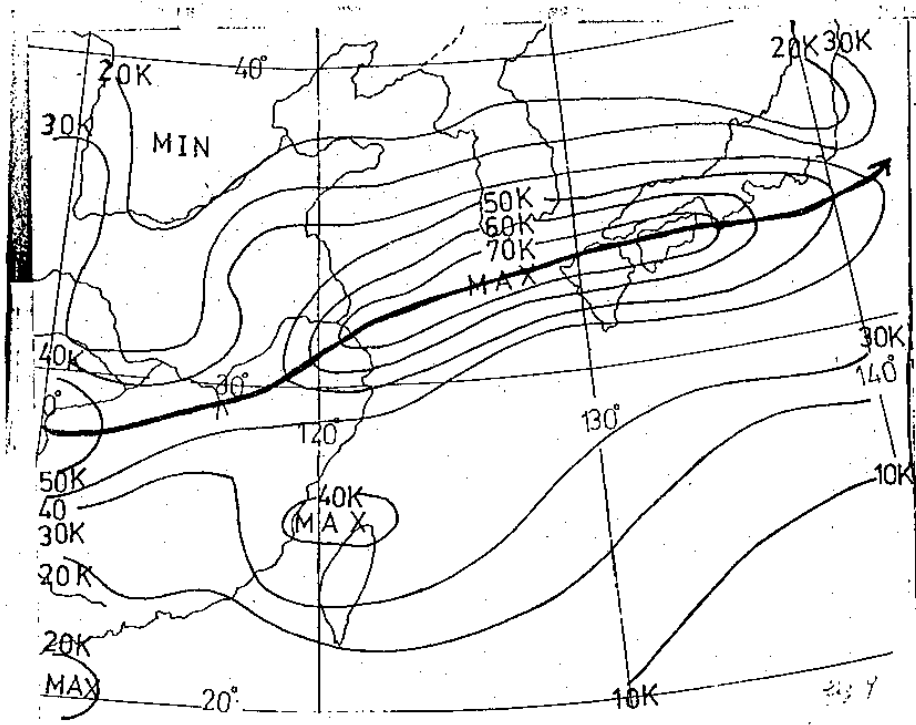 20K 30K
40°
20K
30K
MIN
50K
60K
70K
MAX
30K
40K
140°
30°
0°
120°
130°
10K
50K
40K
40
MAX
30K
20K
20K
MAX
20°
10K